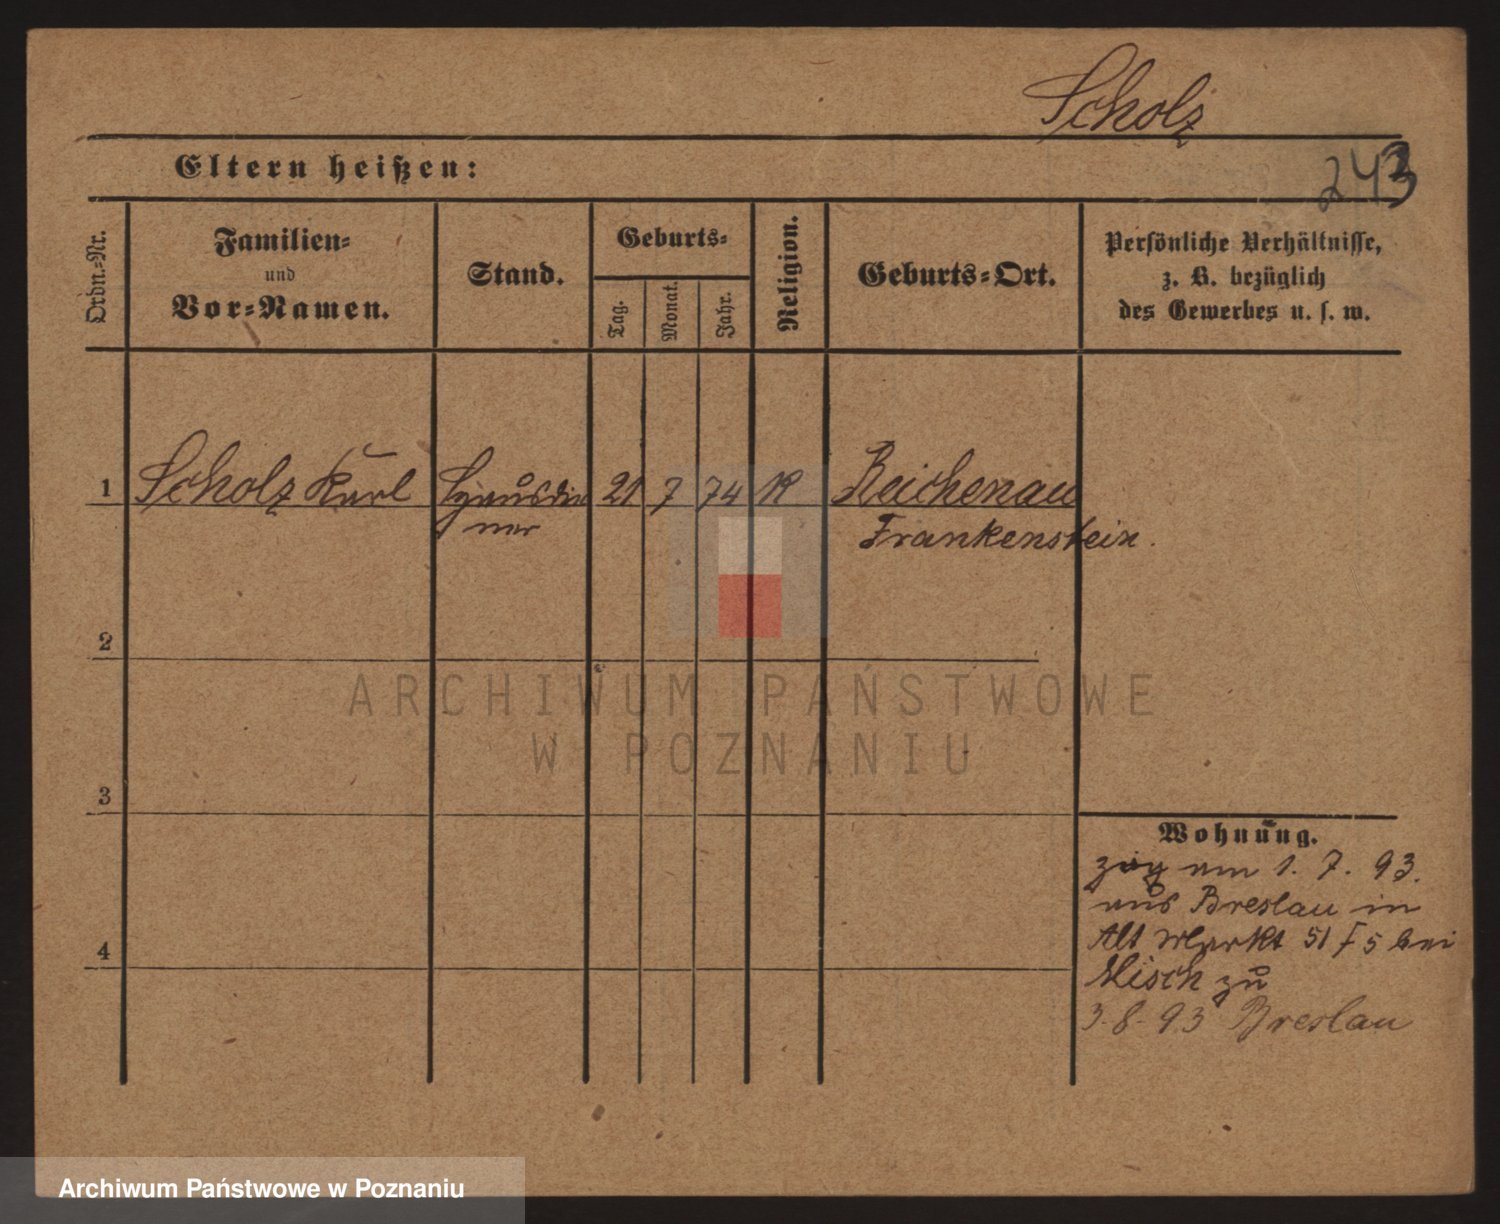 Scholz
243
Eltern heißen:
Ordn.-Nr.
Familien-
und
Vor-Namen.
Stand.
Geburts-
Tag.
Monat.
Jahr.
Religion.
Geburts-Ort.
Persönliche Verhältnisse,
z. B. bezüglich
des Gewerbes u. s. w.
1 Scholz Karl Hausdie 21 7 74 K Reichenau
ner Frankenstein.
2
ARCHIWUM PAŃSTWOWE
W POZNANIU
3
Wohnung.
zog am 1. 7. 93.
aus Breslau in
Alt Markt 51 F 5 bei
4
Misch zu
3.8.93 Breslau
Archiwum Państwowe w Poznaniu